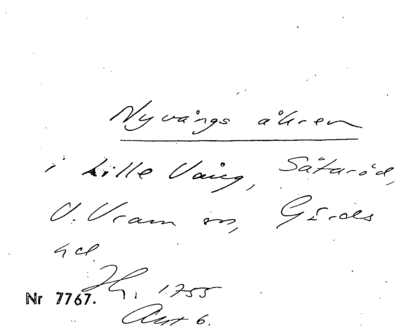 Nyvångs åkren
i Lille Vång, Sätaröd,
V. Vram sn, Gärds
hd.
Hy. 1755
Nr 7767.
Akt 6.